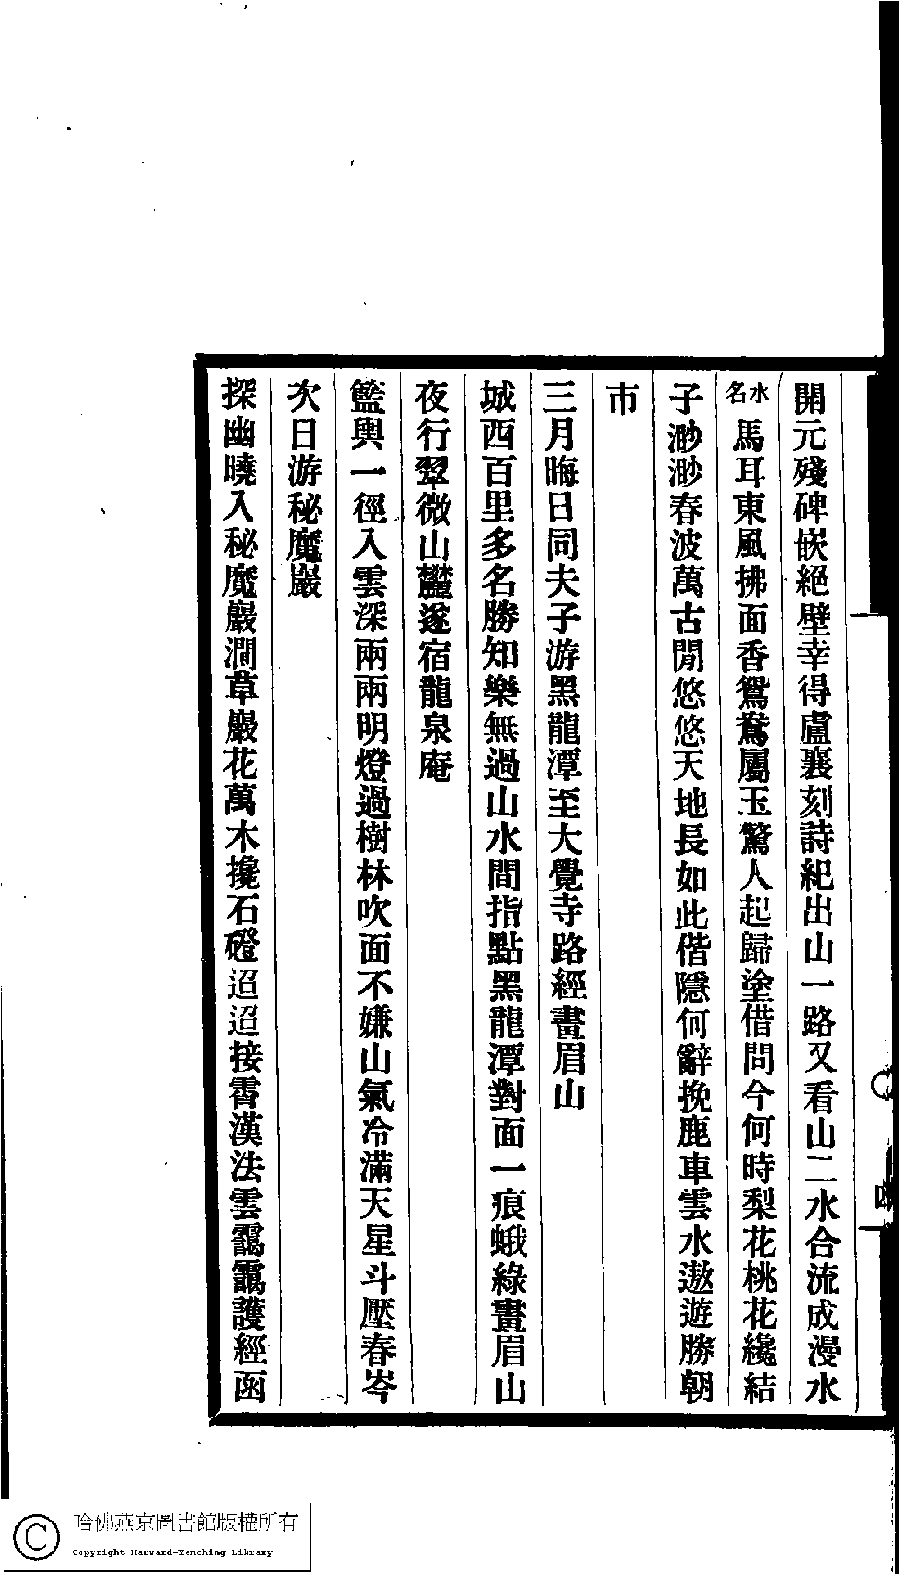 開元殘碑嵌絕壁幸得盧襄刻詩紀出山一路又看山二水合流成漫水
水名馬耳東風拂面香鴛鴦屬玉驚人起歸塗借問今何時梨花桃花纔結
子渺渺春波萬古閒悠悠天地長如此偕隱何辭挽鹿車雲水遨遊勝朝
市
三月晦日同夫子游黑龍潭至大覺寺路經畫眉山
城西百里多名勝知樂無過山水間指點黑龍潭對面一痕蛾綠畫眉山
夜行翠微山麓遂宿龍泉庵
籃輿一徑入雲深兩兩明燈過樹林吹面不嫌山氣冷滿天星斗壓春岑
次日游秘魔巖
探幽曉入秘魔巖澗草巖花萬木攙石磴迢迢接霄漢法雲靄靄護經函
哈佛燕京圖書館版權所有
Copyright Harvard-Yenching Library